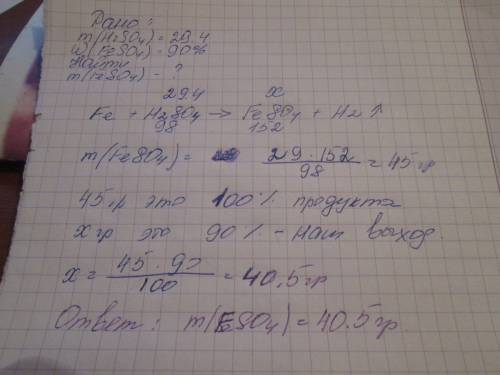 Дано:
m(H2SO4) = 29.4
W(FeSO4) = 90%
Найти
m(FeSO4) - ?
29.4 x
Fe + H2SO4 → FeSO4 + H2 ↑
98 152
m(FeSO4) = 29 . 152 / 98 = 45 гр
45 гр это 100% продукта
x гр это 90% - наш выход.
x = 45 . 90 / 100 = 40,5 гр
Ответ: m(FeSO4) = 40.5 гр.